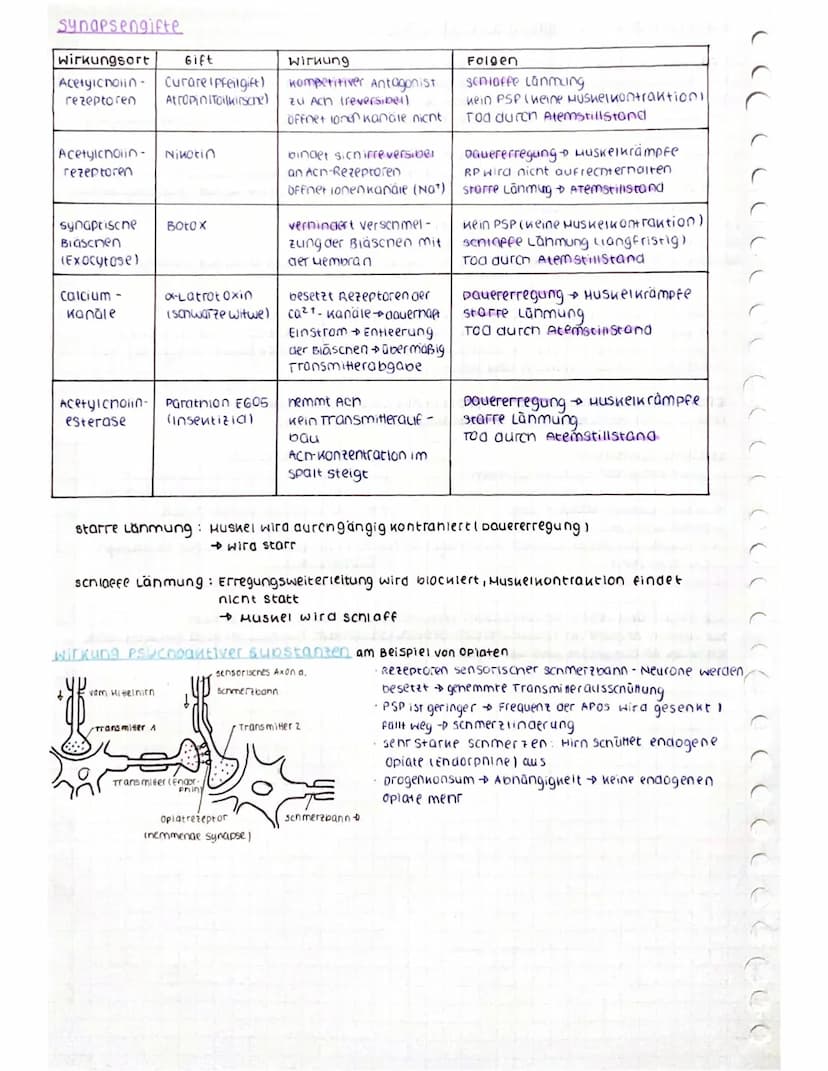 Synapsengifte
Wirkungsort Gift Wirkung Folgen
Acetylcholin-
rezeptoren
Curare (Pfeilgift)
Atropin (Tollkirsche)
kompetitiver Antagonist
zu Ach (reversibel)
öffnet Ionenkanäle nicht
schlaffe Lähmung
kein PSP (keine Muskelkontraktion)
Tod durch Atemstillstand
Acetylcholin-
rezeptoren
Nikotin
bindet sich irreversibel
an Ach-Rezeptoren
öffnet Ionenkanäle (Na⁺)
Dauererregung → Muskelkrämpfe
RP wird nicht aufrechterhalten
starre Lähmung → Atemstillstand
synaptische
Bläschen
(Exocytose)
Botox
vermindert Verschmel-
zung der Bläschen mit
der Membran
kein PSP (keine Muskelkontraktion)
schlaffe Lähmung (langfristig)
Tod durch Atemstillstand
Calcium-
kanäle
α-Latrotoxin
(schwarze Witwe)
besetzt Rezeptoren der
Ca²⁺- Kanäle → dauerhaft
Einstrom → Entleerung
der Bläschen → übermäßig
Transmitterabgabe
Dauererregung → Muskelkrämpfe
starre Lähmung
Tod durch Atemstillstand
Acetylcholin-
esterase
Parathion E605
(Insektizid)
hemmt Ach
kein Transmitterauf-
bau
Ach-Konzentration im
Spalt steigt
Dauererregung → Muskelkrämpfe
starre Lähmung
Tod durch Atemstillstand
starre Lähmung : Muskel wird durchgängig kontrahiert (Dauererregung)
→ wird starr
schlaffe Lähmung : Erregungsweiterleitung wird blockiert, Muskelkontraktion findet
nicht statt
→ Muskel wird schlaff
Wirkung psychoaktiver Substanzen am Beispiel von Opiaten
sensorisches Axon d.
Schmerzbahn
vom Mittelhirn
Transmitter 1
Transmitter 2
Transmitter (Endor-
phin)
Opiatrezeptor
(hemmende Synapse)
Schmerzbahn →
· Rezeptoren sensorischer Schmerzbahn - Neurone werden
besetzt → gehemmte Transmitterausschüttung
· PSP ist geringer → Frequenz der APOs wird gesenkt )
fällt weg → Schmerzlinderung
· sehr starke Schmerzen: Hirn schüttet endogene
Opiate (Endorphine) aus
· Drogenkonsum → Abhängigkeit → keine endogenen
Opiate mehr